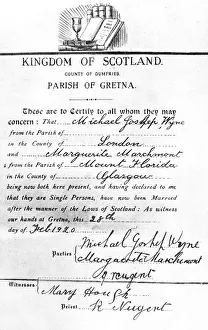 KINGDOM OF SCOTLAND.
COUNTY OF DUMFRIES.
PARISH OF GRETNA.
These are to Certify to all whom they may
concern: That Michael Joshep Wyne
from the Parish of
in the County of London
and Marguerite Marchmont
from the Parish of Mount Florida
in the County of Glasgow
being now both here present, and having declared to me
that they are Single Persons, have now been Married
after the manner of the Laws of Scotland: As witness
our hands at Gretna, this 28th
day of Feb. 1920
Michael Joshep Wyne
Parties
Marguerite Marchmont
Nugent
Witnesses
Mary Hough
Priest R Nugent